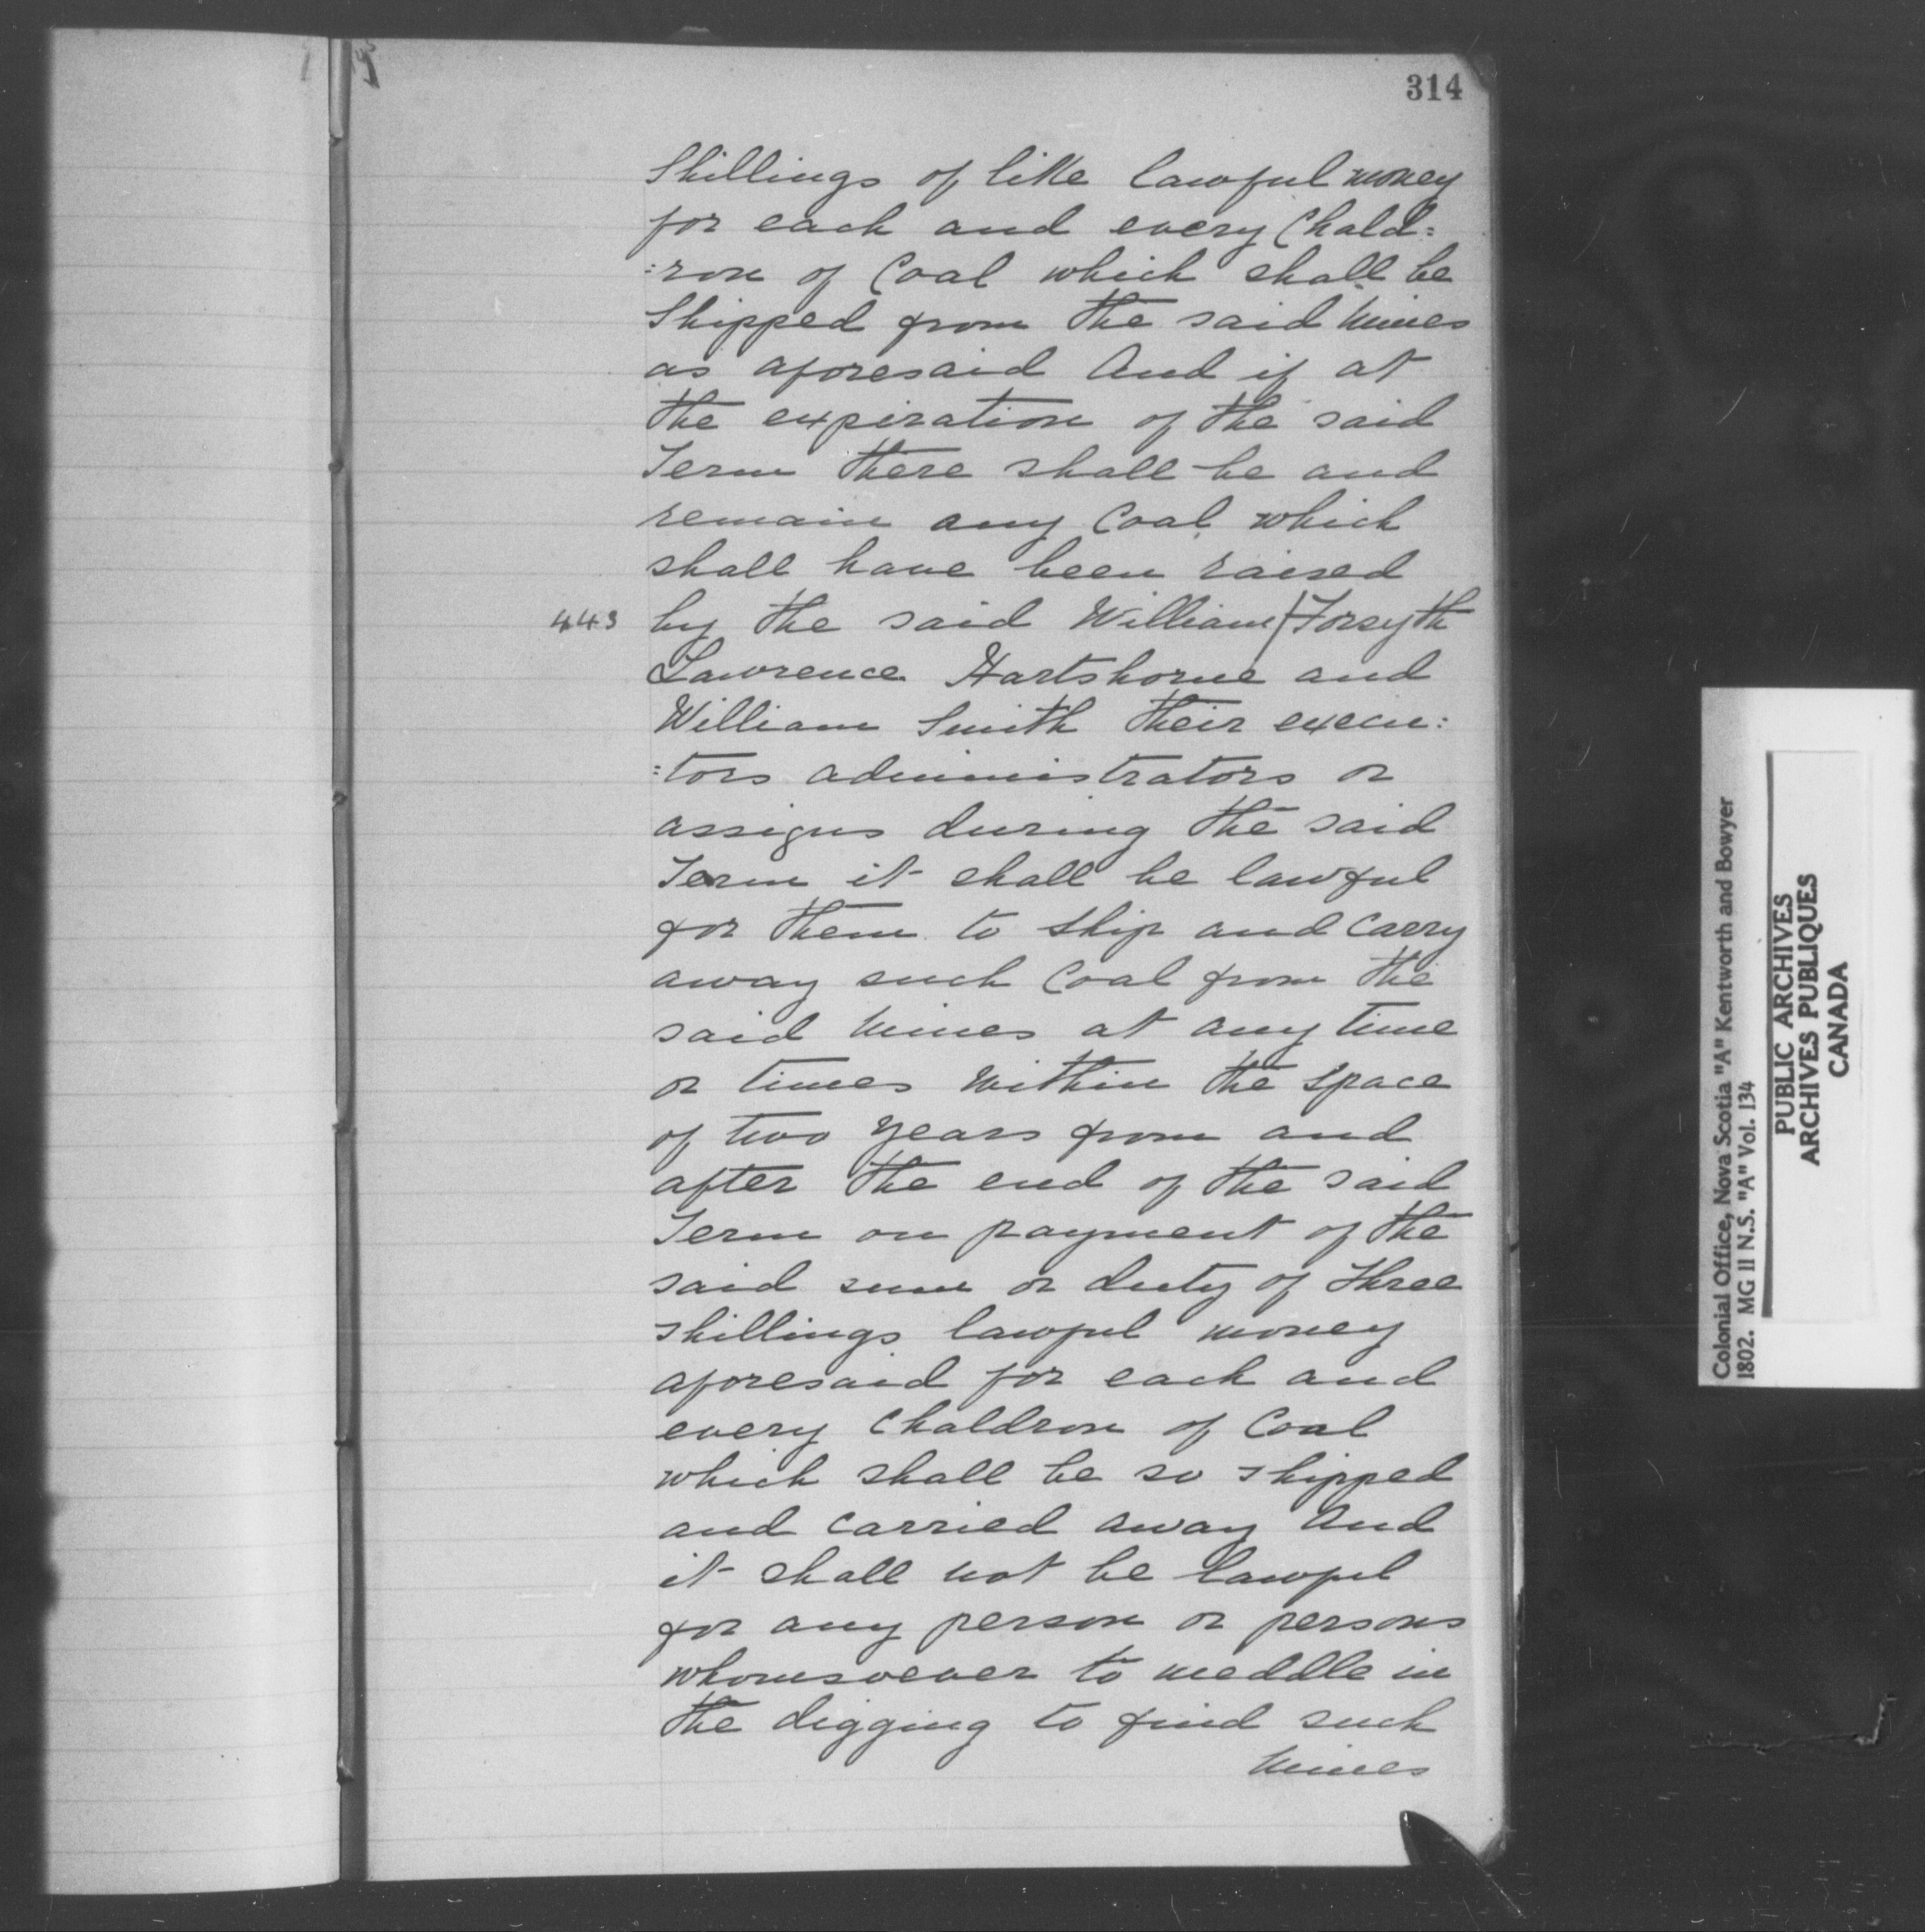 314
Shillings of like lawful money
for each and every Chald=
=ron of Coal which shall be
Shipped from the said Mines
as aforesaid And if at
the expiration of the said
Term there shall be and
remain any Coal which
shall have been raised
443 by the said William / Forsyth
Lawrence Hartshorne and
William Smith their execu=
=tors administrators or
assigns during the said
Term it shall be lawful
for them to ship and carry
away such Coal from the
said Mines at any time
or times within the space
of two years from and
after the end of the said
Term on payment of the
said sum or duty of three
shillings lawful money
aforesaid for each and
every Chaldron of Coal
which shall be so shipped
and carried away And
it shall not be lawful
for any person or persons
whomsoever to meddle in
the digging to find such
Mines
Colonial Office, Nova Scotia "A" Kentworth and Bowyer
1802. MG 11 N.S. "A" Vol. 134
PUBLIC ARCHIVES
ARCHIVES PUBLIQUES
CANADA